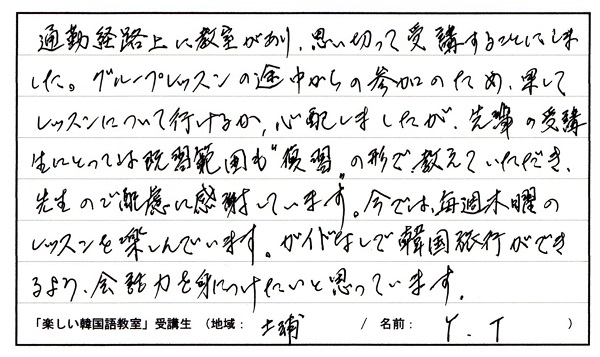 通勤経路上に教室があり、思い切って受講することにしま
した。グループレッスンの途中からの参加のため、果して
レッスンについて行けるか、心配しましたが、先輩の受講
生にとっては既習範囲も"復習"の形で、教えていただき、
先生のご配慮に感謝しています。今では、毎週木曜の
レッスンを楽しんでいます。ガイドなしで韓国旅行ができ
るよう、会話力を身につけたいと思っています。
「楽しい韓国語教室」受講生 (地域: 土浦 / 名前: Y. T )